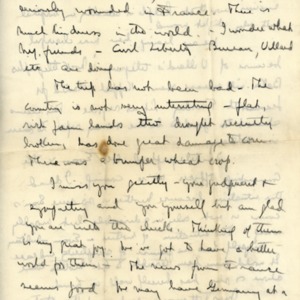 seriously wounded in France. There is
much kindness in the world. I wonder what
my friends - Civil Liberty Bureau, Villard
etc are doing.
The trip has not been bad - the
country is not very interesting - flat,
rich farm lands the drought recently
broken, has done great damage to corn.
There was a bumper wheat crop.
I miss you greatly - your judgment &
sympathy and you yourself but am glad
you are with the chicks. Thinking of them
is my great joy. We've got to have a better
world for them - The news from France
seems good. We may have Germany at a